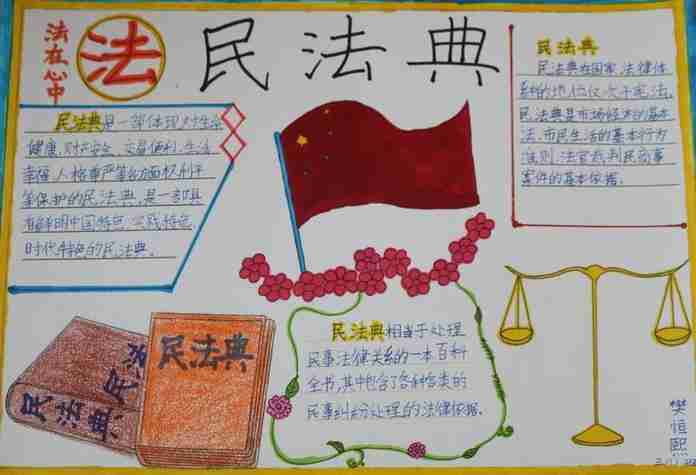 法在心中
法
民法典
民法典是一部体现对生命
健康、财产安全、交易便利、生活
幸福、人格尊严等各方面权利平
等保护的民法典,是一部具
有鲜明中国特色、实践特色、
时代特色的民法典。
民法典
民法典在国家法律体
系中的地位仅次于宪法,
民法典是市场经济的基本
法、市民生活的基本行为
准则,法官裁判民商事
案件的基本依据。
民法典相当于处理
民事法律关系的一本百科
全书,其中包含了各种各类的
民事纠纷处理的法律依据。
民法典
民法
民法典
樊恒熙